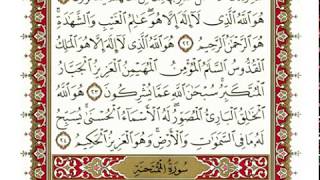 هُوَ ٱللَّهُ ٱلَّذِى لَآ إِلَٰهَ إِلَّا هُوَ ۖ عَٰلِمُ ٱلْغَيْبِ وَٱلشَّهَٰدَةِ ۖ
هُوَ ٱلرَّحْمَٰنُ ٱلرَّحِيمُ ٢٢ هُوَ ٱللَّهُ ٱلَّذِى لَآ إِلَٰهَ إِلَّا هُوَ ٱلْمَلِكُ
ٱلْقُدُّوسُ ٱلسَّلَٰمُ ٱلْمُؤْمِنُ ٱلْمُهَيْمِنُ ٱلْعَزِيزُ ٱلْجَبَّارُ
ٱلْمُتَكَبِّرُ ۚ سُبْحَٰنَ ٱللَّهِ عَمَّا يُشْرِكُونَ ٢٣ هُوَ ٱللَّهُ
ٱلْخَٰلِقُ ٱلْبَارِئُ ٱلْمُصَوِّرُ ۖ لَهُ ٱلْأَسْمَآءُ ٱلْحُسْنَىٰ ۚ يُسَبِّحُ
لَهُۥ مَا فِى ٱلسَّمَٰوَٰتِ وَٱلْأَرْضِ ۖ وَهُوَ ٱلْعَزِيزُ ٱلْحَكِيمُ ٢٤
سُورَةُ ٱلْمُمْتَحَنَةِ